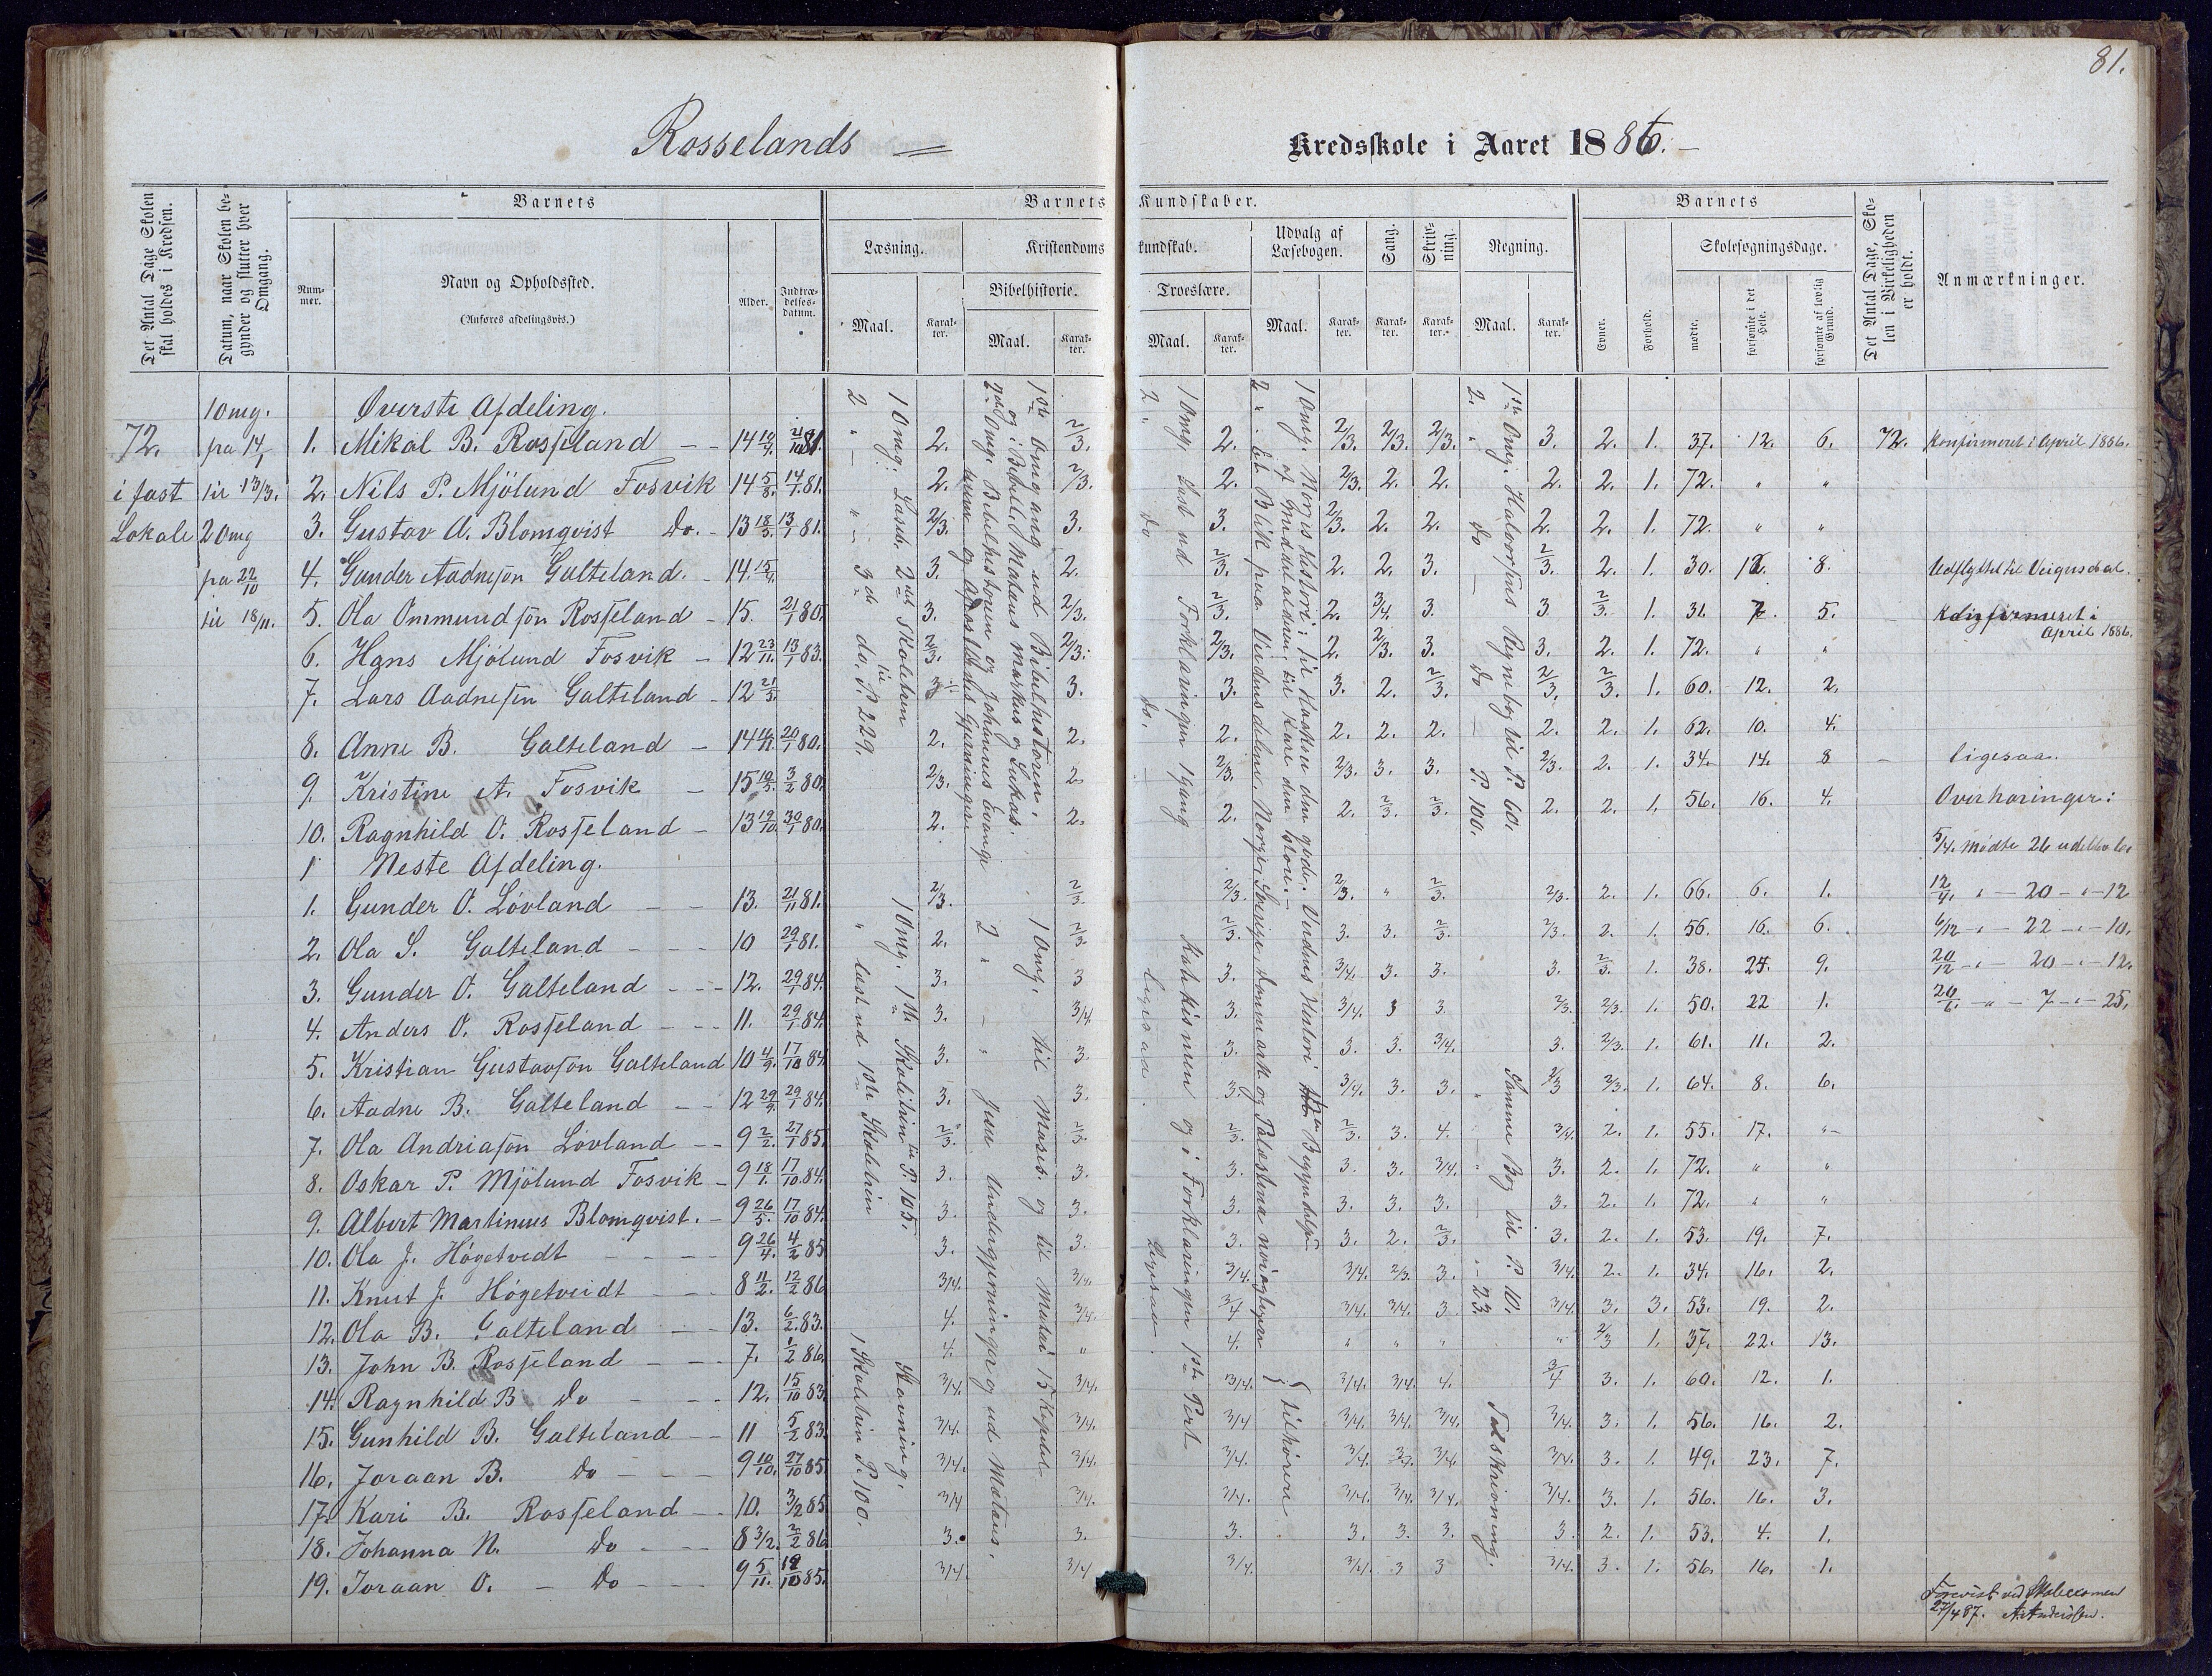 81.
Rosselands Kredsskole i Aaret 1886.
Det Antal Dage Skolen skal holdes i Kredsen.
Datum, naar Skolen begynder og slutter hver Omgang.
Barnets
Nummer.
Navn og Opholdssted.
(Anføres afdelingsvis.)
Alder.
Indtrædelsesdatum.
Barnets Kundskaber.
Læsning.
Maal.
Karakter.
Kristendomskundskab.
Bibelhistorie.
Maal.
Karakter.
Troeslære.
Maal.
Karakter.
Udvalg af Læsebogen.
Maal.
Karakter.
Sang.
Karakter.
Skrivning.
Karakter.
Regning.
Maal.
Karakter.
Barnets
Evner.
Forhold.
Skolesøgningsdage.
mødte.
forsømte i det Hele.
forsømte af lovlig Grund.
Det Antal Dage, Skolen i Virkeligheden er holdt.
Anmærkninger.
1 Omg.
Øverste Afdeling.
72. fra 14/1 1. Mikal B. Rosseland 14 2. 2/3. 2. 2/3. 2/3. 2/3. 3. 2. 1. 37. 12. 6. 72. Konfirmeret i April 1886.
i fast til 13/3. 2. Nils P. Mjölund Fosvik 14 5/8. 14/1 81. 2. 2/3. 2. 2/3. 2. 2. 2. 2. 1. 72. " "
Lokale 2 Omg 3. Gustav A. Blomqvist Do. 13 18/3. 13/1 81. 2/3. 3. 3. 2/3. 2. 2. 2. 2. 1. 72. " "
fra 22/10 4. Gunder Aadnesøn Galteland. 14. 3. 2. 2/3. 2. 2. 3. 2/3. 2. 1. 30. 8. Udflyttet til Veigusdal.
til 18/11. 5. Ola Ommundsøn Rosseland 15. 21/1 80. 3. 2/3. 2/3. 2. 3/4. 3. 3 2/3. 1. 31. 7. 5. Konfirmeret i April 1886.
6. Hans Mjölund Fosvik 12 23/11. 13/1 83. 2/3. 2/3. 2/3. 2. 2/3. 3. 3. 2. 1. 72. " "
7. Lars Aadnesøn Galteland 12 21/3. 3. 3. 3. 2. 2/3. 2/3. 2/3. 1. 60. 12. 2.
8. Anne B. Galteland 14 20/1 80. 2. 2. 2. 2. 2. 2. 2. 2. 1. 62. 10. 4.
9. Kristine A. Fosvik 15 3/2 80. 2/3. 2. 2/3. 2/3. 3. 3. 2/3. 2. 1. 34. 14. 8 ligesaa.
10. Ragnhild O. Rosseland 13 19/10. 30/1 80. 2. 2. 2. 2. 2/3. 2/3. 2. 2. 1. 56. 16. 4. Overhøringer:
Neste Afdeling.
5/4. Mødte 26 udeblev 6
1. Gunder O. Lövland 13. 21/11 81. 2/3. 2/3 2/3. 2/3. " 2/3. 2/3. 2. 1. 66. 6. 1. 12/4. " 20 " 12
2. Ola S. Galteland 10 29/1 81. 2. 2/3 2/3. 3. 3. 2/3. 2/3. 2. 1. 56. 16. 6. 6/12 " 22 " 10.
3. Gunder O. Galteland 12. 29/1 84. 3. 3 3. 3/4. 3. 3. 3. 2/3. 1. 38. 9. 20/12 " 20 " 12.
4. Anders O. Rosseland 11. 29/1 84. 3. 3/4 3. 3/4. 3 3. 2/3. 2/3. 1. 50. 22 1. 20/6. " 7 " 25.
5. Kristian Gustavsøn Galteland 10 4/9. 17/10 84. 3. 3. 3. 3. 3. 3/4. 3. 2/3. 1. 61. 11. 2.
6. Aadne B. Galteland 12 29/9. 29/1 84. 3. 3. 3. 3/4. 3. 3. 2/3 2/3. 1. 64. 8. 6.
7. Ola Andriasøn Lovland 9 2/2. 27/1 85. 2/3. 2/3. 2/3. 2/3. 3. 4. 3/4. 2. 1. 55. 17. "
8. Oskar P. Mjölund Fosvik 9 18/1. 17/10 84. 3. 3. 3. 3. 3. 3/4. 3. 2. 1. 72. " "
9. Albert Martinius Blomqvist. 9 26/5. 17/10 84. 3. 3. 3. 3. 3. 3. 3. 2. 1. 72. " "
10. Ola J. Högetvedt 9 26/4. 4/2 85 3. 3. 3. 3. 2. 2/3. 3. 2. 1. 53. 19. 7.
11. Knut J. Högetveidt 8 11/2. 12/2 86 3/4. 3/4. 3/4. 3/4. 2/3. 3. 3/4. 2. 1. 34. 16. 2.
12. Ola B. Galteland 13. 6/2 83. 4. 3/4. 3/4 3/4. 3/4. 3 3/4. 3. 3. 53. 19. 2.
13. John B. Rosseland 7. 1/2 86. 4. " 4. " " " " 2/3 1. 37. 22. 13.
14. Ragnhild B Do 12. 15/10 83. 3/4. 3/4. 3/4. 3/4. 3/4. 4. 3/4 3. 1. 60. 12. 1.
15. Gunhild B. Galteland 11 5/2 83. 3/4. 3/4. 3/4 3/4. 3/4. 3/4. 3/4. 3. 1. 56. 16. 2.
16. Joraan B. Do 9 10/10. 27/10 85. 3/4. 3/4. 3/4. 3/4. 3/4. 3/4. 3. 1. 49. 23. 7.
17. Kari B. Rosseland 10. 3/2 85. 3/4 3/4. 3/4. 3/4. 3/4. 3/4. 3/4. 3. 1. 56. 16. 3.
18. Johanna N. Do 8 3/2. 2/2 86 3. 3. 3. 3. 3. 3. 3. 2. 1. 53. 4. 1.
19. Joraan O. Do 9 5/11. 85. 3/4. 3/4 3/4. 3/4. 3 3 3/4. 3. 1. 56. 16. 1.
1 Omg: Læseb. 2det Skoletrin
2 " 3de do. P. 229.
1ste Omgang ud Bibelhistorien,
og i Bibelen Matæus markus og Lukas.
2den Omg. Bibelhistorien og Johannes Evange
lium og Apostlernes Gjerninger.
1 Omg. Læst ud Forklaringen 1 gang
2 " Do do.
1 Omg. Norges Historie til Haakon den gode. Verdens Historie Begyndelse
af middelalderen til Karl den store.
2 " Et Blik paa Verdensdelene, Norge, Sverige, Danmark og Palæstina nøiagtigere
1ste Omg. Halvorsens Regnebog til P. 60.
2. " do do P. 100.
1 Omg. 1ste Skoletrin til P. 105.
" læst ud 1ste Skoletrin
Stavning.
1 Skoletrin P. 100.
1 Omg. til Moses og til Matæi 15 Kapitel
2 " " Jesu Undergjerninger og ud Matæus.
Katekismen og i Forklaringen 1ste Part
ligesaa.
ligesaa.
tilhørere
Samme Bog til P. 10.
" 23.
Talskrivning.
Forevist ved Skoleexamen
27/4 87. A. Anderssen.